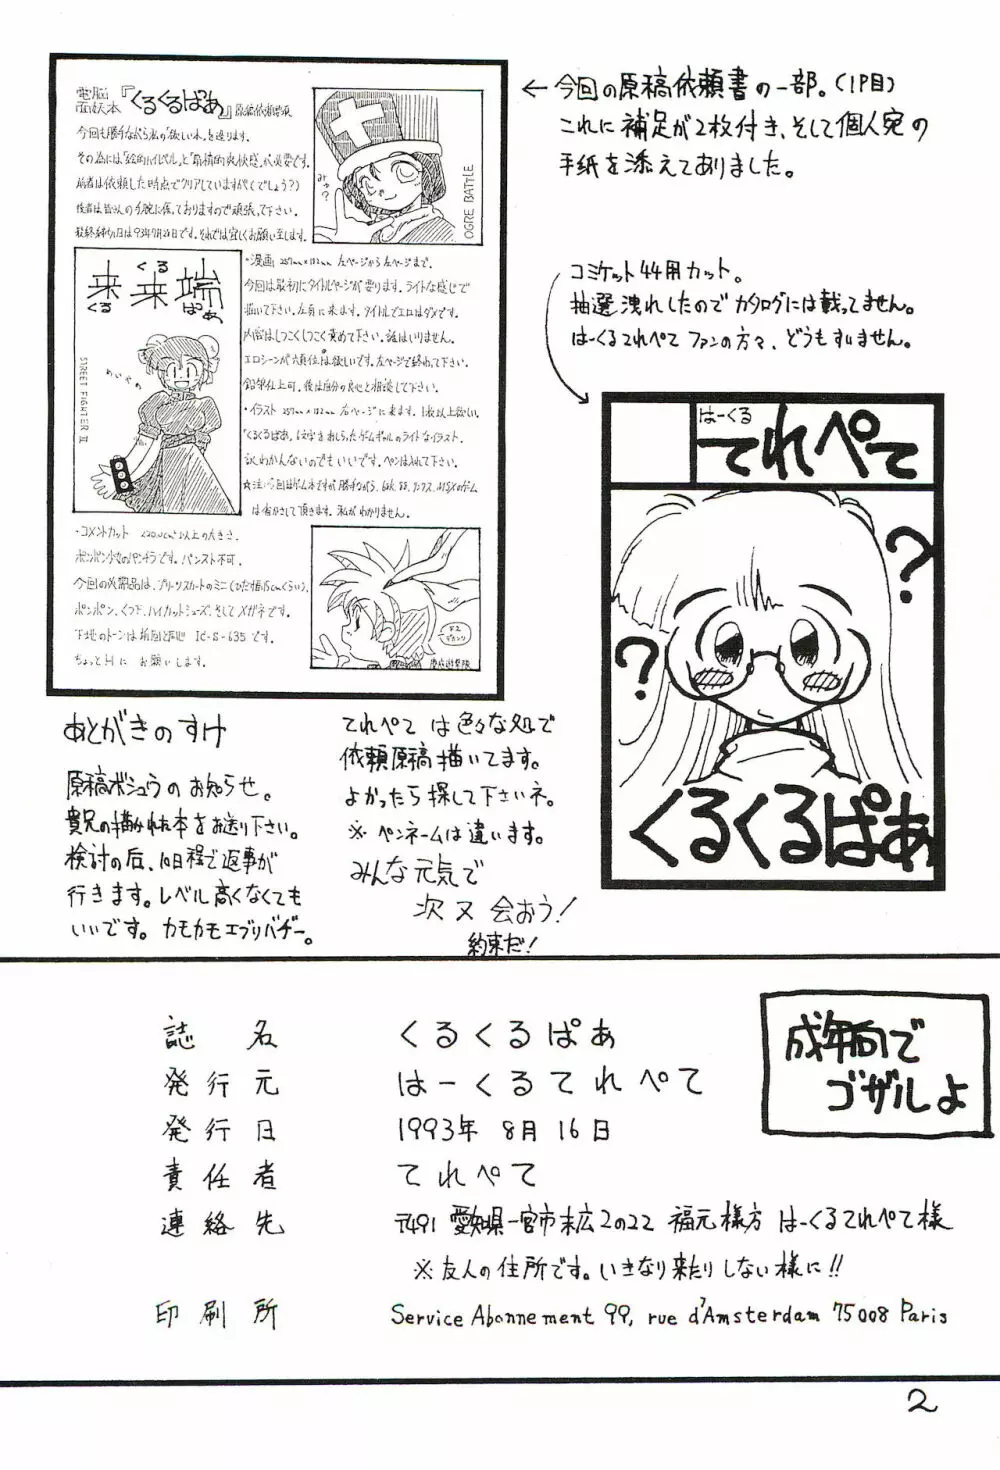 電脳
面妖本『くるくるぱあ』原稿依頼要項
今回も勝手ながら私の欲しい本を造ります。
その為には、「絵的ハイレベル」と「扇情的爽快感」が必要です。
前者は依頼した時点でクリアしていますが(くでしょう?)
後者は皆さんの手腕に係っておりますので頑張って下さい。
最終締切日は93年7月25日です。それでは宜しくお願い致します。
みゅ?
OGRE BATTLE
来来端
くる くる ぱあ
STREET FIGHTER II
・漫画 257mm×182mm 左ページから左ページまで。
今回は最初にタイトルページが要ります。ライトな感じで
描いて下さい。左頁に来ます。タイトルでエロはダメです。
内容はしつこくしつこく責めて下さい。話はいりません。
エロシーンが六頁位は欲しいです。左ページで終わって下さい。
鉛筆仕上可。後は自分の良心と相談して下さい。
・イラスト 257mm×182mm 右ページに来ます。1枚以上欲しい。
「くるくるぱあ」文字をあしらったゲームギャルのライトなイラスト。
訳わかんないのでもいいです。ペンは入れて下さい。
は省かさして頂きます。私がわかりません。
・コメントカット 220.5cm²以上の大きさ。
ポンポン少女のパンチラです。パンスト不可。
今回の必需品は、プリーツスカートのミニ(ひだ幅1.5cmくらい)、
ポンポン、くつ下、ハイカットシューズ、そしてメガネです。
下地のトーンは前回と同じ IC-S-635 です。
ちょっとHに お願いします。
← 今回の原稿依頼書の一部。(1P目)
これに補足が2枚付き、そして個人宛の
手紙を添えてありました。
コミケット44用カット。
抽選洩れしたのでカタログには載ってません。
はーくるてれぺてファンの方々、どうもすいません。
はーくる
てれぺて
?
?
くるくるぱあ
あとがきのすけ
原稿ボシュウのお知らせ。
貴兄の描かれた本をお送り下さい。
検討の后、10日程で返事が
行きます。レベル高くなくても
いいです。カモカモエブリバデー。
てれぺては色々な処で
依頼原稿描いてます。
よかったら探して下さいネ。
※ ペンネームは違います。
みんな元気で
次又会おう!
約束だ!
誌名 くるくるぱあ
発行元 はーくるてれぺて
発行日 1993年 8月 16日
責任者 てれぺて
連絡先 〒491 愛知県一宮市末広2の22 福元様方 はーくるてれぺて様
※友人の住所です。いきなり来たりしない様に!!
印刷所 Service Abonnement 99, rue d'Amsterdam 75008 Paris
成年向で
ゴザルよ
2